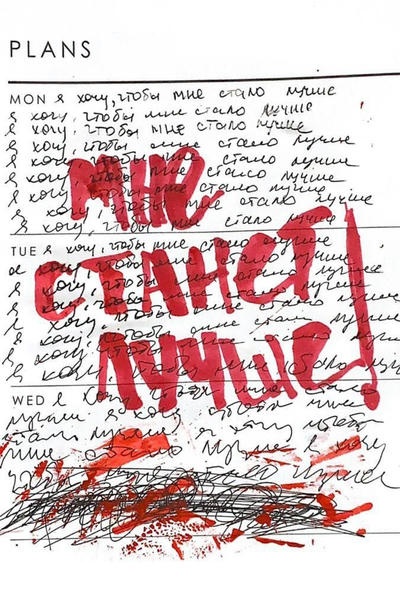 PLANS
MON я хочу, чтобы мне стало лучше
я хочу, чтобы мне стало лучше
я хочу, чтобы мне стало лучше
я хочу, чтобы мне стало лучше
я хочу, чтобы мне стало лучше
я хочу, чтобы мне стало лучше
я хочу, чтобы мне стало лучше
я хочу, чтобы мне стало лучше
мне
TUE я хочу, чтобы мне стало лучше
я хочу, чтобы мне стало лучше
я хочу, чтобы мне стало лучше
станет
я хочу, чтобы мне стало лучше
я хочу, чтобы мне стало лучше
я хочу чтобы мне стало лучше
я хочу
лучше!
WED я хочу чтобы мне стало
лучше я хочу чтобы мне
стало лучше я хочу чтобы
мне стало лучше я хочу